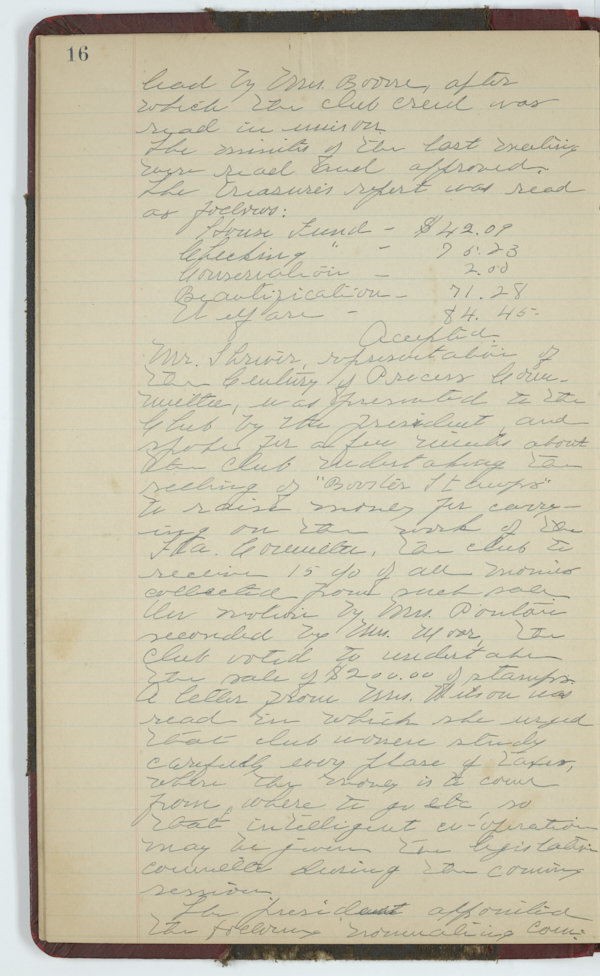 16
lead by Mrs. Boone, after
which the club creed was
read in unison.
The minutes of the last meeting
were read and approved.
The treasure's report was read
as follows:
House Fund - $42.09
Checking " - 75.23
Conservation - 2.00
Beautification - 71.28
Welfare - 84.45
Accepted.
Mr. Shriver, representative of
the Century of Process Com-
mittee, was presented to the
Club by the president and
spoke for a few minutes about
the club undertaking the
selling of "Booster Stamps"
to raise money for carry-
ing on the work of the
Fla. Committee, the club to
receive 15 % of all monies
collected from such sale
On motion by Mrs.
seconded by Mrs. Moor, the
club voted to undertake
the sale of $200.00 of stamps.
A letter from Mrs. was
read in which she urged
that club women study
carefully every phase of taxes,
where the money is to come
from, where to go etc, so
that intelligent co-operation
may be given the legislative
committe during the coming
session.
The president appointed
the following nominating com: